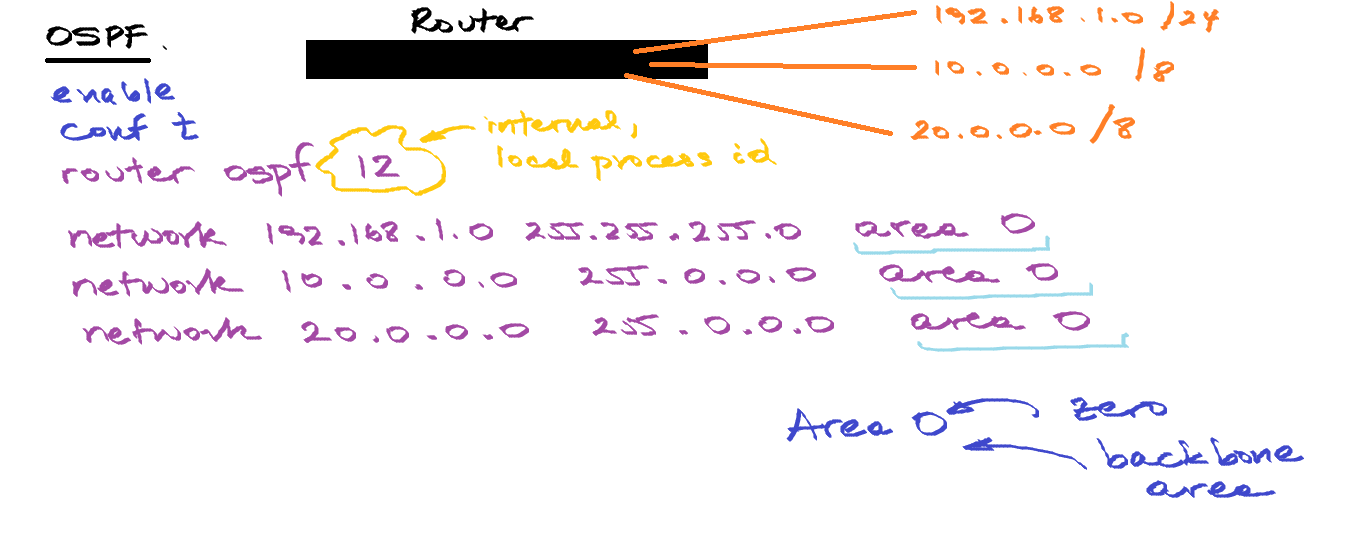 OSPF.
Router
192.168.1.0 /24
10.0.0.0 /8
20.0.0.0 /8
enable
conf t
router ospf 12
internal,
local process id
network 192.168.1.0 255.255.255.0 area 0
network 10.0.0.0 255.0.0.0 area 0
network 20.0.0.0 255.0.0.0 area 0
Area 0
zero
backbone
area